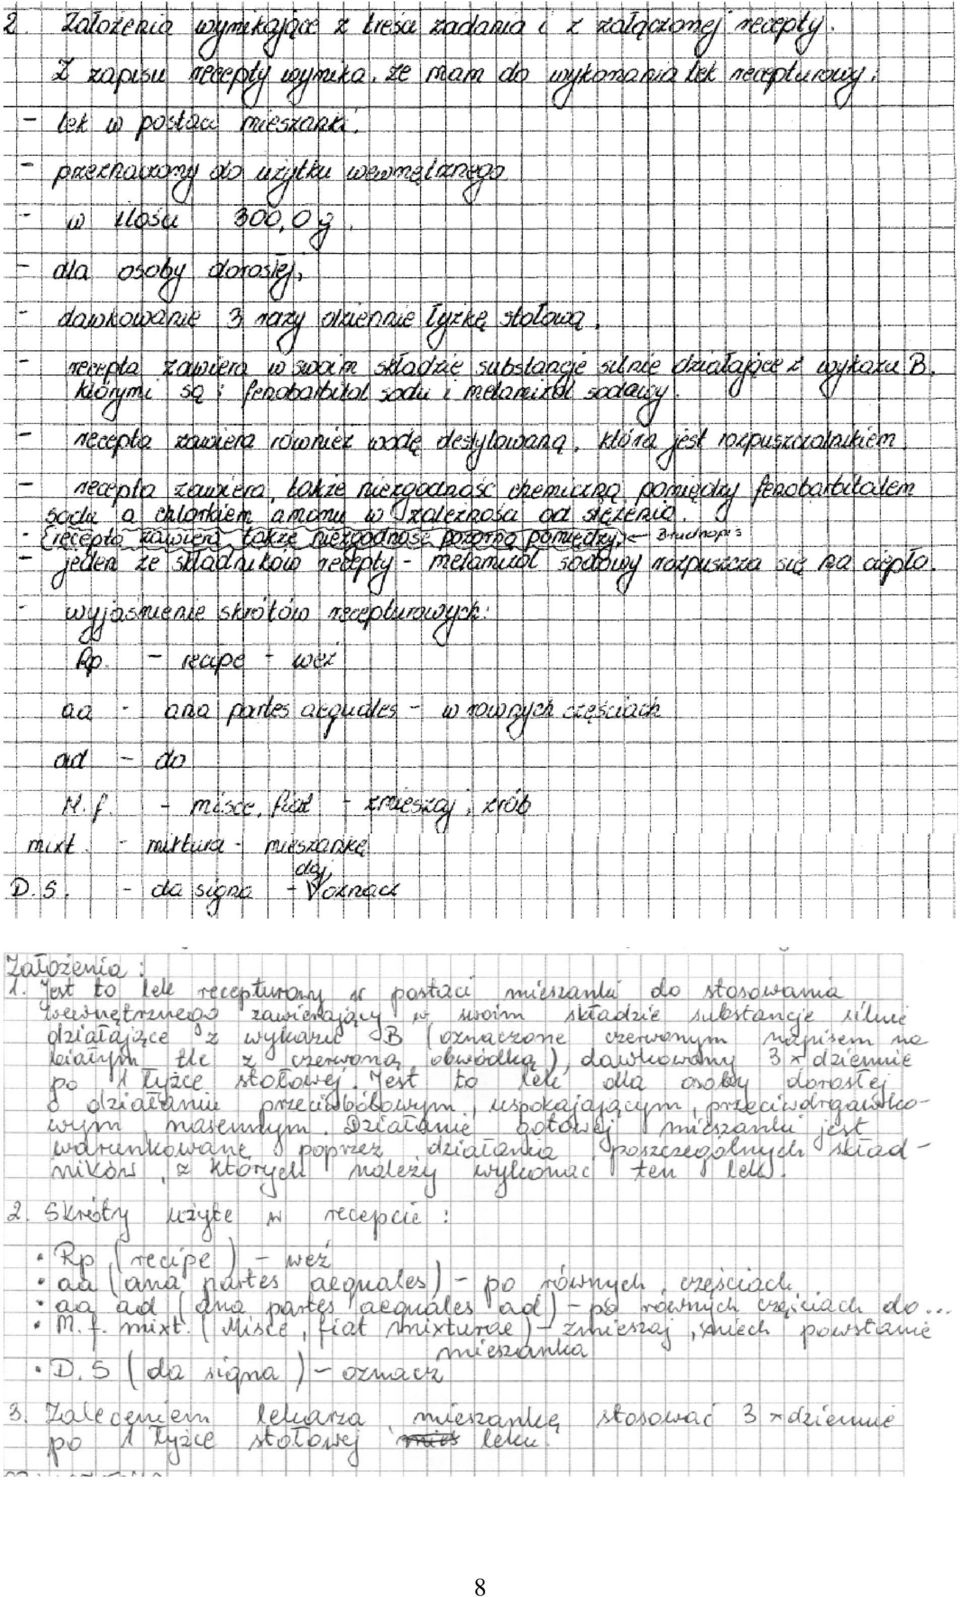 2. Założenia wynikające z treści zadania i z załączonej recepty.
Z zapisu recepty wynika, że mam do wykonania lek recepturowy,
- lek w postaci mieszanki,
- przeznaczony do użytku wewnętrznego
- w ilości 300,0 g,
- dla osoby dorosłej,
- dawkowanie 3 razy dziennie łyżkę stołową,
- recepta zawiera w swoim składzie substancje silnie działające z wykazu B,
którymi są: fenobarbital sodu i metamizol sodowy.
- recepta zawiera również wodę destylowaną, która jest rozpuszczalnikiem.
- recepta zawiera, także niezgodność chemiczną pomiędzy fenobarbitalem
sodu a chlorkiem amonu w zależności od stężenia.
- (recepta zawiera także niezgodność pozorną pomiędzy) ← brudnopis
- jeden ze składników recepty - metamizol sodowy rozpuszcza się na ciepło.
- wyjaśnienie skrótów recepturowych:
Rp. - recipe - weź
aa - ana partes aequales - w równych częściach
ad - do
M.f. - misce, fiat - zmieszaj, zrób
mixt. - mixtura - mieszankę
daj,
D.S. - da signa - V oznacz
Założenia:
1. Jest to lek recepturowy w postaci mieszanki do stosowania
wewnętrznego zawierający w swoim składzie substancje silnie
działające z wykazu B (oznaczone czerwonym napisem na
białym tle z czerwoną obwódką), dawkowany 3 x dziennie
po 1 łyżce stołowej. Jest to lek dla osoby dorosłej
o działaniu przeciwbólowym, uspokajającym, przeciwdrgawko-
wym, nasennym. Działanie gotowej mieszanki jest
warunkowane poprzez działania poszczególnych skład-
ników, z których należy wykonać ten lek.
2. Skróty użyte w recepcie:
• Rp (recipe) - weź
• aa (ana partes aequales) - po równych częściach
• aa ad (ana partes aequales ad) - po równych częściach do...
• M.f. mixt. (Misce, fiat mixturae) - zmieszaj, niech powstanie
mieszanka
• D.S (da signa) - oznacz
3. Zaleceniem lekarza mieszankę stosować 3 x dziennie
po 1 łyżce stołowej mies leku.
8